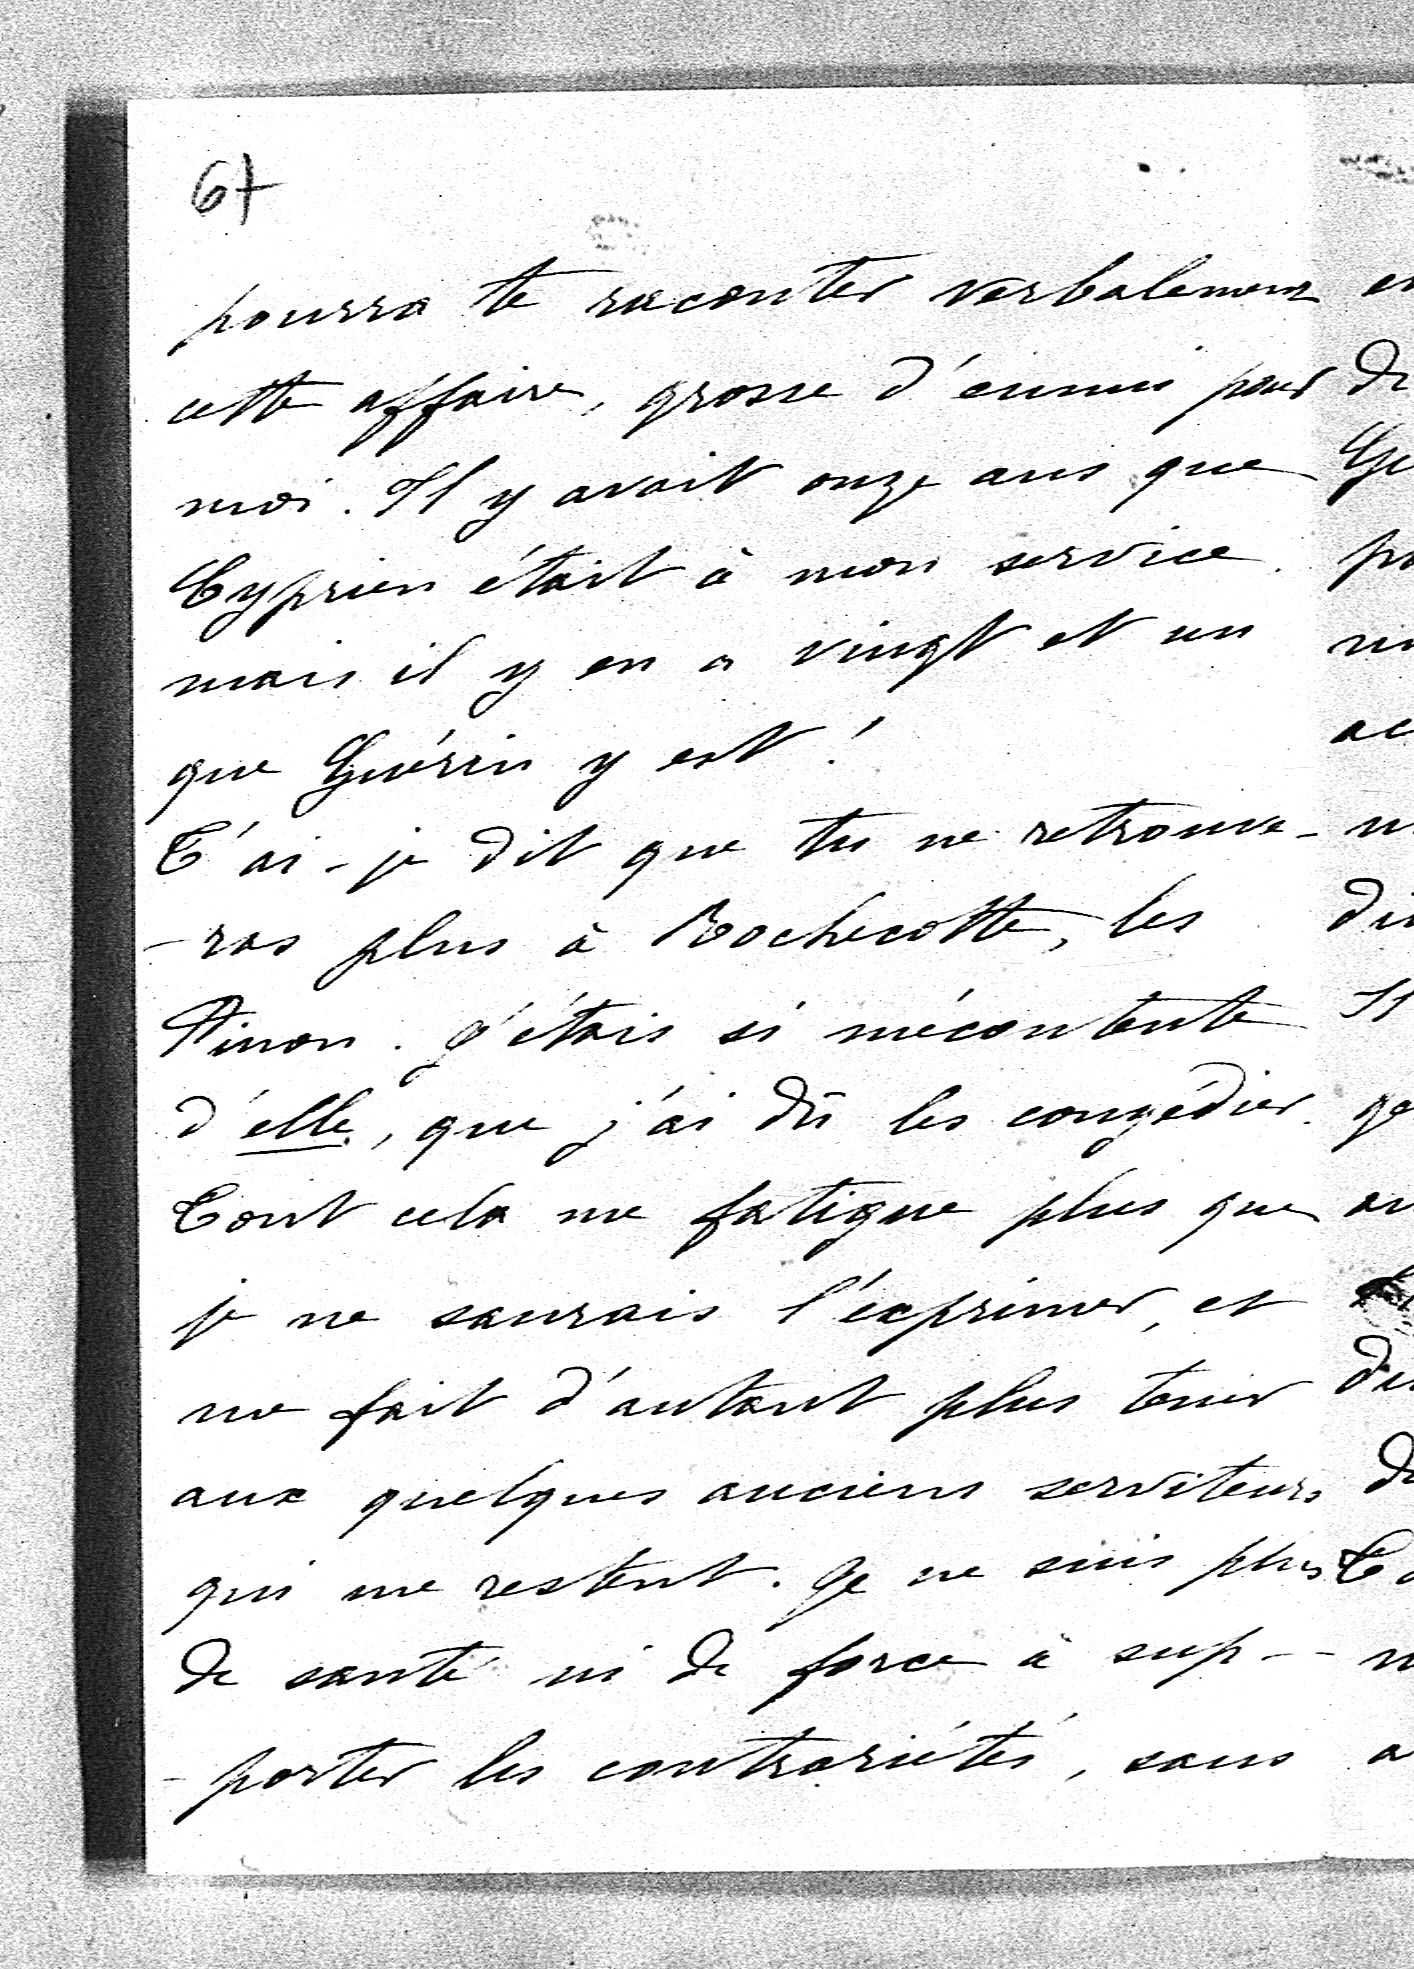 67
pourra te raconter verbalement
cette affaire, grosse d'ennui pour
moi. Il y avait onze ans que
Cyprien était à mon service.
mais il y en a vingt et un
que Guérin y est!
T'ai-je dit que tu ne retrouve-
-ras plus à Rochecotte, les
Pinon. J'étais si mécontente
d'elle, que j'ai dû les congédier.
Tout cela me fatigue plus que
je ne saurais l'exprimer, et
me fait d'autant plus tenir
aux quelques anciens serviteurs
qui me restent. Je ne suis plus
de santé ni de force à sup--
-porter les contrariétés, sans